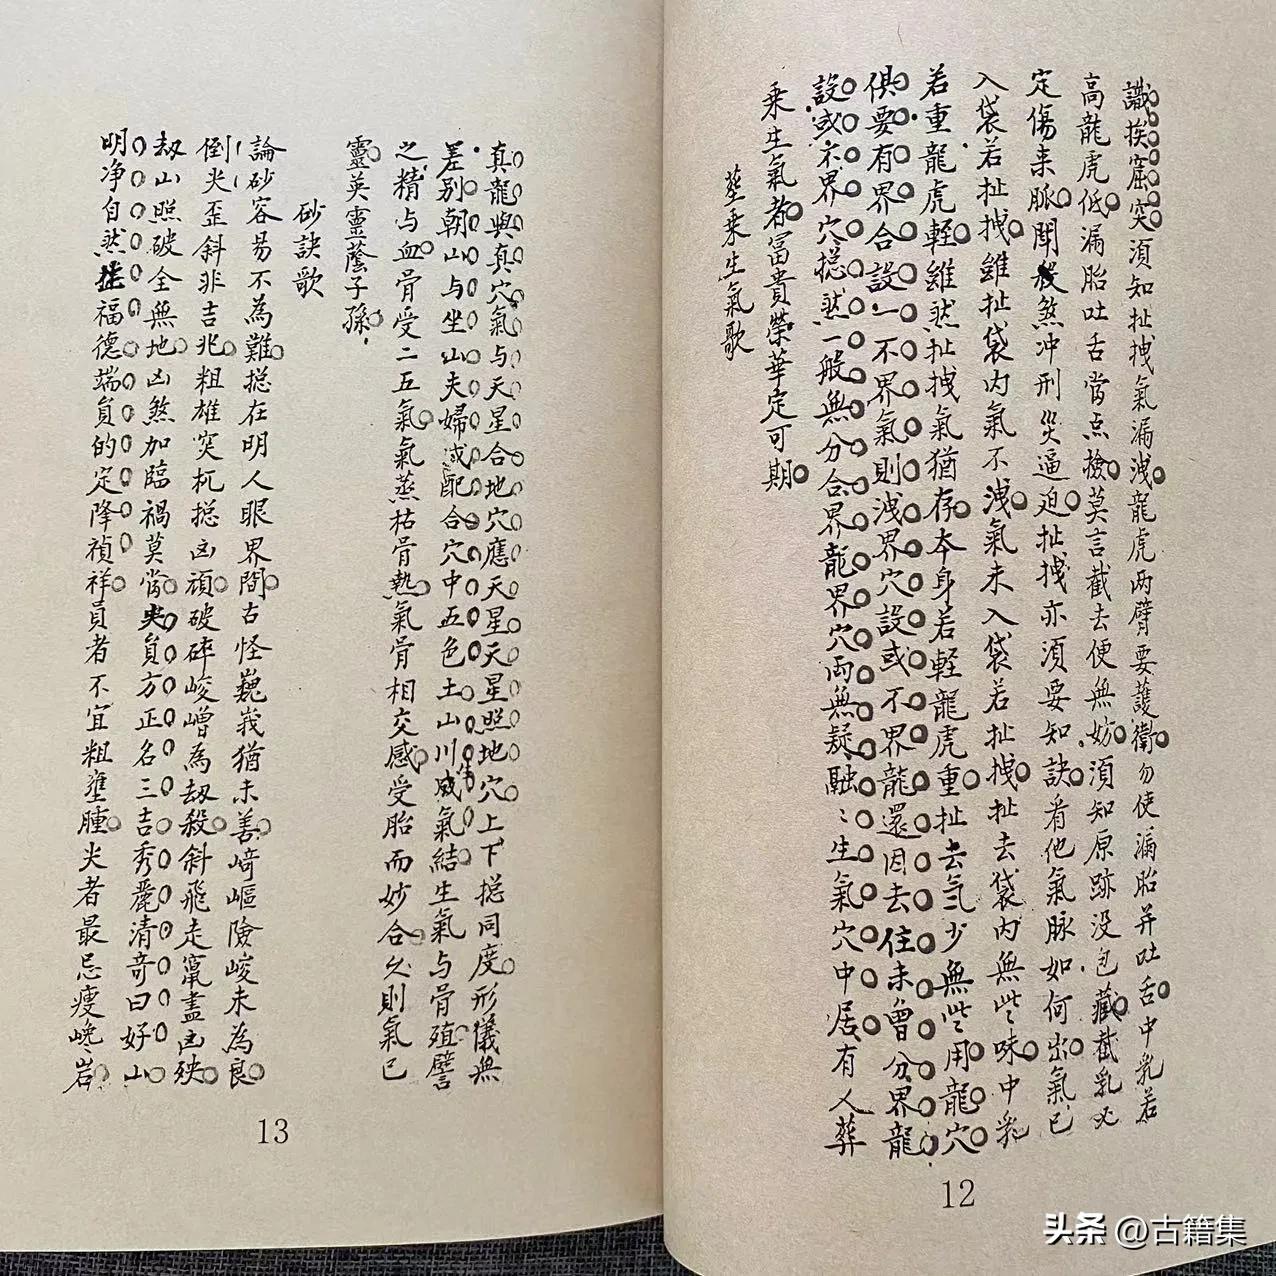 識挨窟突須知扯拽氣漏洩龍虎两臂要護衛勿使漏胎并吐舌中乳若
高龍虎低漏胎吐舌當点檢莫言截去便無妨須知原跡没包藏截乳必
定傷来脉閗殺煞冲刑災逼迫扯拽亦須要知訣看他氣脉如何出氣已
入袋若扯拽雖扯袋内氣不洩氣未入袋若扯拽扯去袋内無些味中乳
若重龍虎輕雖然扯拽氣猶存夲身若軽龍虎重扯去气少無些用龍穴
俱要有界合設一不界氣則洩界穴設或不界龍還因去住未曾分界龍
設或不界穴揔然一般無分合界龍界穴両無疑融〻生氣穴中居有人葬
乘生氣者冨貴榮華定可期
塟乗生氣歌
12
真龍與真穴氣与天星合地穴應天星天星照地穴上下揔同度形儀無
差别朝山与坐山夫婦或配合穴中五色土山川成生氣結生氣与骨殖譬
之精与血骨受二五氣氣蒸枯骨熱氣骨相交感受胎而妙合久則氣已
靈英靈蔭子孫
砂訣歌
論砂容易不為難揔在明人眼界間古怪巍峩猶未善﨑嶇險峻未為良
倒尖歪斜非吉兆粗雄突杌揔凶頑破碎崚嶒為刼殺斜飛走竄盡凶殃
刼山照破全無地凶煞加臨禍莫當尖負方正名三吉秀麗清奇曰好山
明净自然福德端負的定降禎祥員者不宜粗壅腫尖者最忌瘦巉岩
13
头条 @古籍集